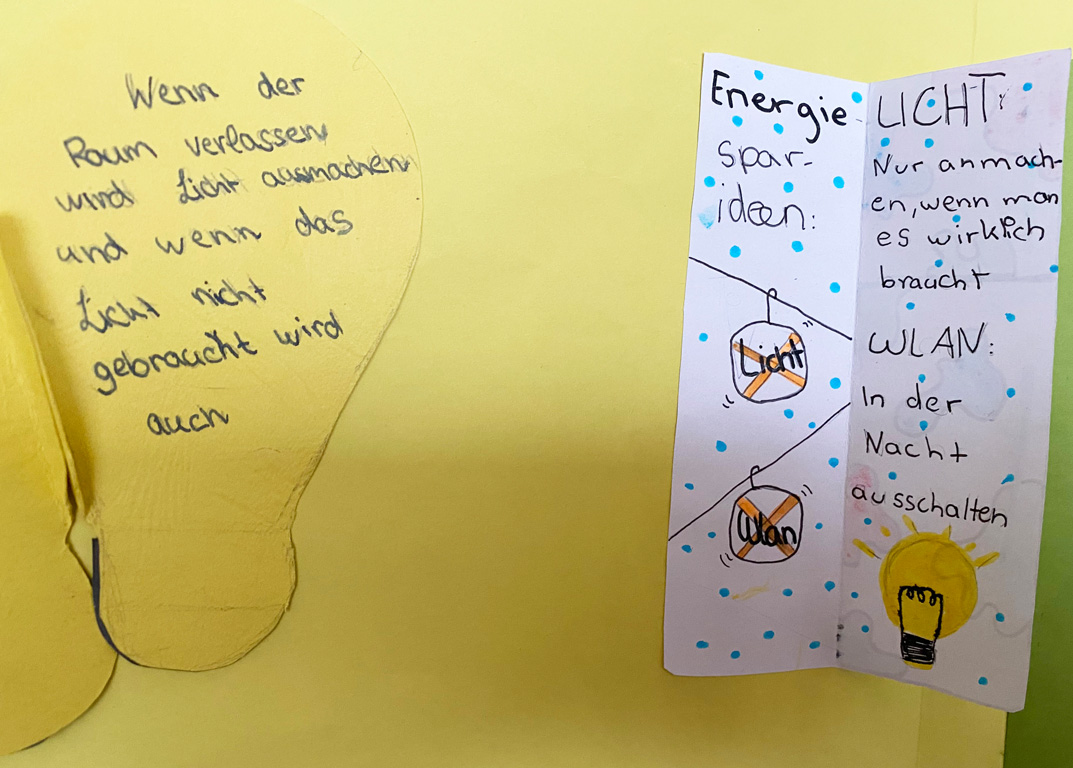 Wenn der
Raum verlassen
wird Licht ausmachen
und wenn das
Licht nicht
gebraucht wird
auch
Energie
spar-
ideen:
Licht
Wlan
LICHT:
Nur anmach-
en, wenn man
es wirklich
braucht
WLAN:
In der
Nacht
ausschalten